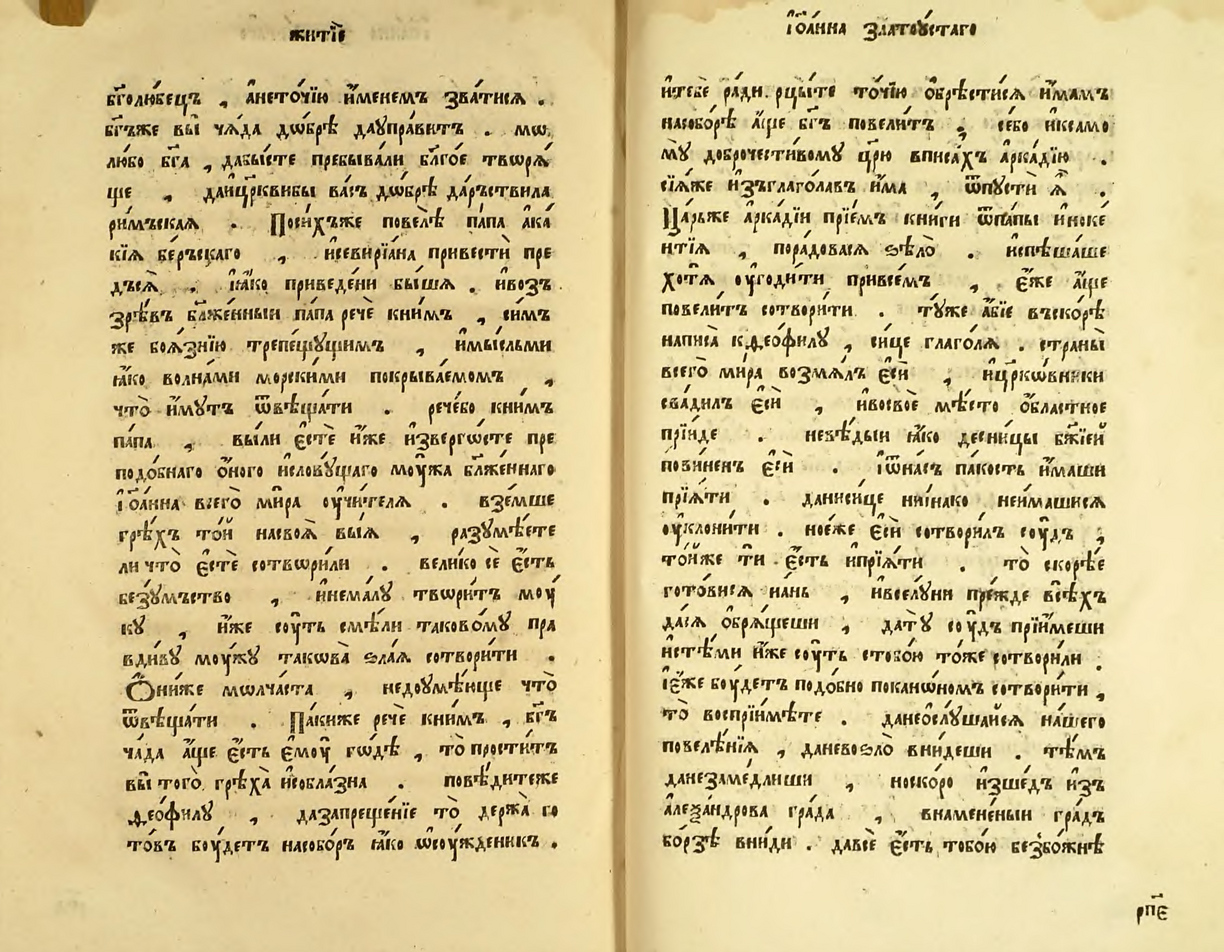 житїе
бг҃олю́бецъ , а҆неточїю и҆́менемъ зва́тисѧ .
бг҃ъже вы̀ чѧ́да дѡбрѣ̀ даѹпра́витъ . мѡ
любо бг҃а , дабы́сте пребыва́ли бл҃го́е творѧ́
ще , даицр҃квибы ва́съ дѡ́брѣ да́рьствила
ри́мъскаѧ . По́сихъже повелѣ̀ па́па а҆ка́
кїѧ бе́рьскаго , и҆севирїа́на привестѝ пре
дъсѧ̀ . ꙗ҆́ко приведе́ни бы́шѧ . и҆воз
зрѣ́въ бл҃же́нныи па́па речѐ кни́мъ , си́мъ
же боѧ́знїю трепещу́щимъ , и҆мы́сльми
ꙗ҆́ко волна́ми морски́ми покрыва́емомъ ,
что̀ и҆́мꙋтъ ѿвѣща́ти . рече́бо кни́мъ
па́па , вы́ли є҆стѐ и҆́же и҆зверго́сте пре
подо́бнаго о҆́ного и҆словꙋ́щаго моу́жа бл҃же́ннаго
і҆ѻа́нна всего̀ ми́ра оу҆чи́телѧ . взе́мше
грѣ́хъ то́й насвоѧ̀ вы́ѧ , разꙋмѣ́ете
ли что̀ є҆стѐ сотвори́ли . вели́ко сѐ є҆́сть
безꙋ́мьство , и҆нема́лꙋ твори́тъ моу́
кꙋ , и҆́же соу́ть смѣ́ли таково́мꙋ пра
вди́вꙋ моу́жꙋ такѡва̀ ѕла́ѧ сотвори́ти .
Ѻ҆ни́же мѡлча́ста , недоꙋмѣ́юще что̀
ѿвѣща́ти . Па́киже речѐ кни́мъ , бг҃ъ
ча́да а҆́ще є҆́сть є҆моу̀ го́дѣ , то прости́тъ
вы̀ того̀ грѣха̀ и҆собла́зна . повѣ́дитеже
ѳео́филꙋ , дазапреще́нїе то̀ держа̀ го
то́въ боу́детъ насобо́ръ ꙗ҆́ко ѡ҆соу́жденикъ .
і҆ѻа́нна златоꙋстаго
и҆тебѐ ра́ди . рцы́те то́чїю ѡ҆брѣ́стисѧ и҆́мамъ
насобо́рѣ а҆́ще бг҃ъ повели́тъ . се́бо и҆ксамо
мꙋ̀ доброчести́вомꙋ цр҃ю вписа́хъ а҆рка́дїю .
сїѧ́же и҆зъглаго́лавъ и҆́ма , ѿпꙋстѝ ѧ҆̀ .
Ца́рьже а҆рка́дїи прїе́мъ кни́ги ѿпа́пы и҆ноке́
нтїѧ , пора́довасѧ ѕѣло̀ . и҆спѣша́ше
хотѧ̀ оу҆годи́ти привсе́мъ , є҆́же а҆́ще
повели́тъ сотвори́ти . тꙋ́же а҆́бїе въско́рѣ
написа̀ кѳео́филꙋ , си́це глаго́лѧ . страны̀
всего̀ ми́ра возмѧ́лъ є҆сѝ , и҆цр҃ко́вники
сва́дилъ є҆сѝ , и҆восво́е мѣ́сто о҆бластно́е
прїи́де . невѣ́дыи ꙗ҆́ко десни́цы бж҃їей
пови́ненъ є҆сѝ . і҆ѿна́съ па́кость и҆́маши
прїѧ́ти . даниси́це нии́нако неи́машисѧ
оу҆клони́ти . ное́же є҆сѝ сотвори́лъ соу́дъ ,
то́йже тѝ є҆́сть и҆прїѧ́ти . то̀ скорѣ́е
гото́висѧ на́нь , и҆вселꙋ́ни пре́жде всѣ́хъ
да́сѧ ѡ҆брѧ́щеши , датꙋ̀ соу́дъ прїи́меши
и҆стѣ́ми и҆́же соу́ть стобо́ю то́же сотвори́ли .
і҆є҆́же боу́детъ подо́бно покано́номъ сотвори́ти ,
то̀ воспрїи́мѣте . данеослꙋ́шайсѧ на́шего
повелѣ́нїѧ , данево́ѕло вни́деши . тѣ́мъ
данезаме́длиши , носко́ро и҆зше́дъ и҆зъ
а҆леѯа́ндрова гра́да , внамене́ныи гра́дъ
бо́рзѣ вни́ди . давсѐ є҆́сть тобо́ю безбо́жнѣ
рп҃є